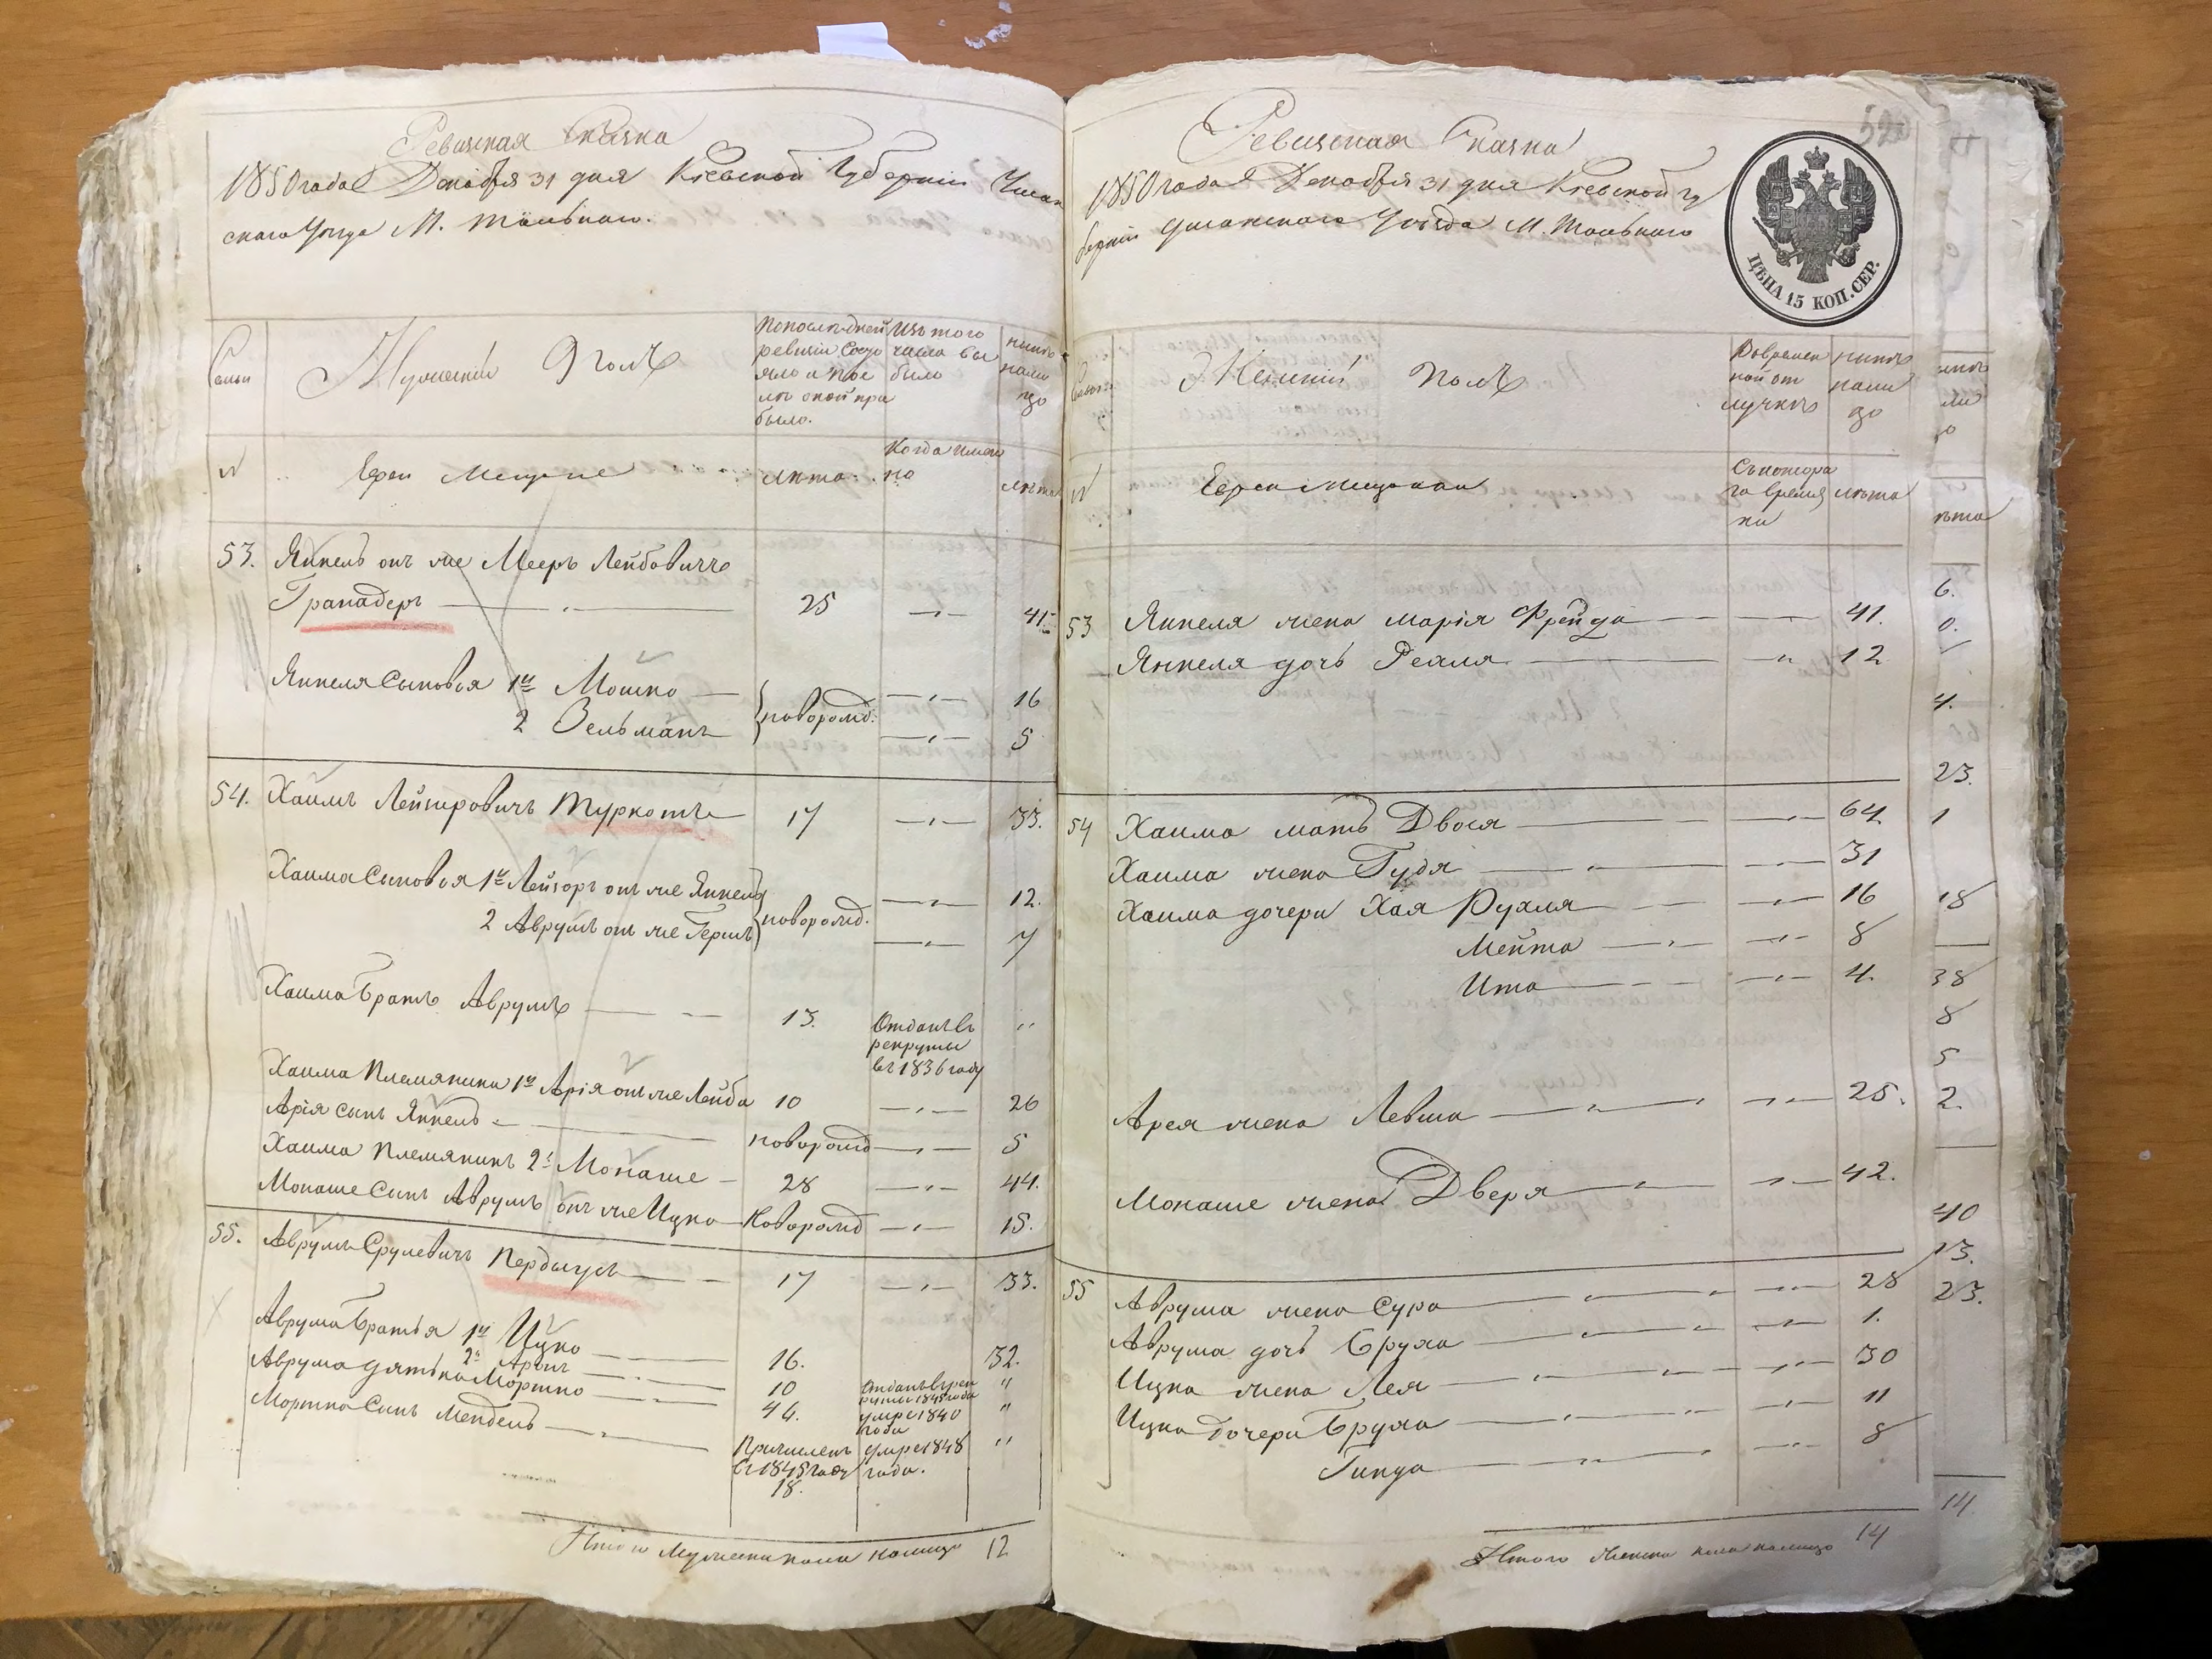 Ревизская Сказка
1850 года Декабря 31 дня Кіевской Губерніи Уман
скаго Уезда М. Тальнаго.
Семьи
Мужескій Полъ
По последней
ревизіи состо
яло и после
оной при
было.
Изъ того
числа вы
было
ныне
на ли
цо
№
Евреи Мещане
лета
Когда имен
но
лета
53. Янкель онъ же Мееръ Лейбовичъ
Гранадеръ 25 41
Янкеля сыновья 1й Мошко 16
2 Зельманъ новорожд. 5
54. Хаимъ Лейзеровичъ Туркотъ 17 33.
Хаима сыновья 1й Лейзоръ онъ же Янкель 12.
2 Аврумъ онъ же Гершъ новорожд. 7
Хаима братъ Аврумъ 13. Отданъ въ "
рекруты
въ 1836 году
Хаима племянники 1й Арія онъ же Лейба 10 26
Арія сынъ Янкель новорожд 5
Хаима племянникъ 2й Монаше 28 44.
Монаше сынъ Аврумъ онъ же Ицко Новорожд 15.
55. Аврумъ Срулевичъ Пердысусъ 17 33.
Аврума братья 1й Ицко 16. 32.
2й Аронъ 10 Отданъ въ рек "
руты 1845 года
Аврума дятька Мортко 44. умре 1840 "
года
Мортка сынъ Мендель Причисленъ умре 1848 "
въ 1845 году года.
18.
Итого Мужеска пола налицо 12
Ревизская Сказка
1850 года Декабря 31 дня Кіевской Гу
берніи Уманскаго Уезда М. Тальнаго
ЦѢНА 15 КОП. СЕР.
Женскій Полъ
Во времен
ной от
лучке
ныне
на ли
цо
№
Евреи мещанки
Съ котора
го времени
лета
53 Янкеля жена Марія Фрейда 41.
Янкеля дочь Рехля 12
54 Хаима мать Двося 64
Хаима жена Гудя 31
Хаима дочери Хая Рухля 16
Мейта 8
Ита 4.
Арея жена Левша 25.
Монаше жена Дверя 42.
55 Аврума жена Сура 28
Аврума дочь Бруха 1.
Ицка жена Лея 30
Ицка дочери Бруха 11
Гинда 8
Итого Женска пола налицо 14
лета
6.
0.
4.
23.
1
18
38
8
5
2.
40
13.
23.
14